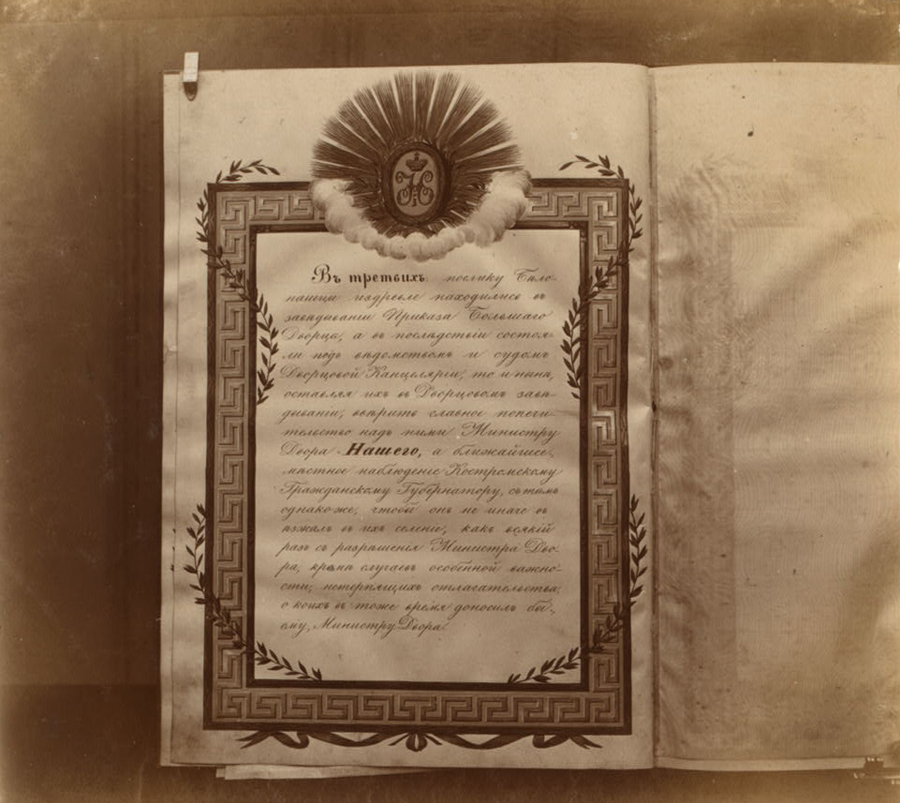 Въ третьихъ: поелику Бѣло-
пашцы издревле находились въ
завѣдываніи Приказа Большаго
Дворца, а въ послѣдствіи состоя-
ли подъ вѣдомствомъ и судомъ
Дворцовой Канцеляріи, то и нынѣ,
оставляя ихъ въ Дворцовомъ завѣ-
дываніи, ввѣрить главное попечи-
тельство надъ ними Министру
Двора Нашего, а ближайшее,
мѣстное наблюденіе Костромскому
Гражданскому Губернатору, съ тѣмъ
однакоже, чтобы онъ не иначе въ
ѣзжалъ въ ихъ селеніе, какъ всякій
разъ съ разрѣшенія Министра Дво-
ра, кромѣ случаевъ особенной важно-
сти, нетерпящихъ отлагательства,
о коихъ въ тоже время доносилъ бы
ему, Министру Двора.